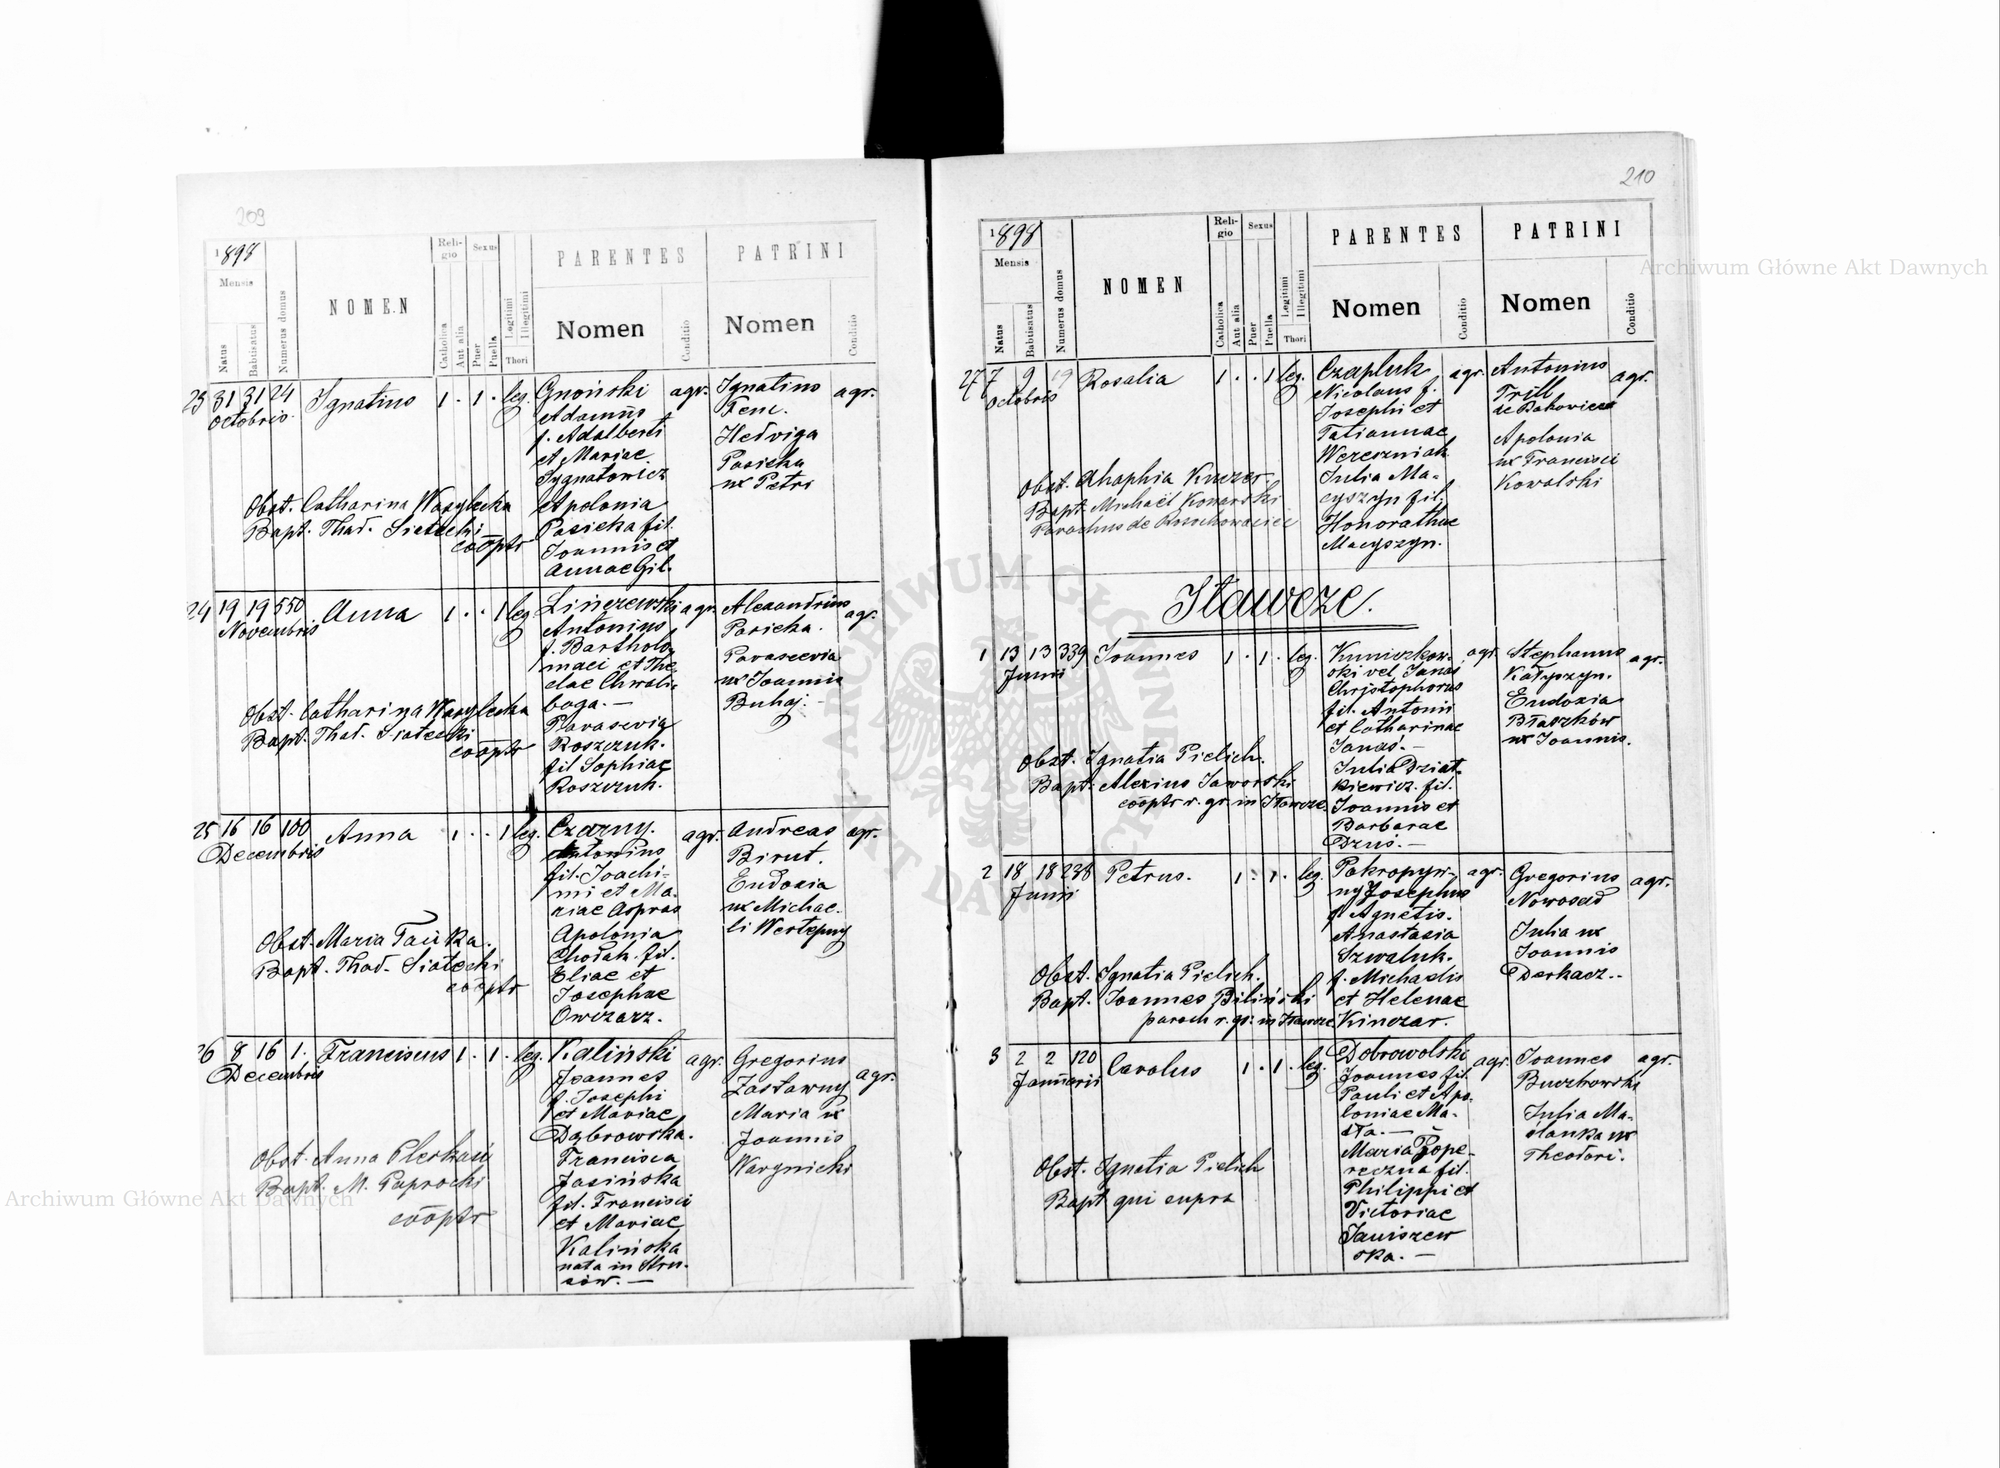 209
1898
Mensis
Natus
Babtisatus
Numerus domus
NOMEN
Religio
Catholica
Aut alia
Sexus
Puer
Puella
Legitimi
Illegitimi
Thori
PARENTES
Nomen
Conditio
PATRINI
Nomen
Conditio
23 31 31 24 Ignatius 1 . 1 . leg. Gnoiński agr. Ignatius agr.
Octobris
Adamus
f. Adalberti
et Mariae
Sygnatowicz
Apolonia
Pasieka fil.
Joannis et
Annae Gil.
Fenc.
Hedviga
Pasieka
ux Petri
Obst. Catharina Wasylecka
Bapt. Thad. Siatecki
cooptr
24 19 19 550 Anna 1 . . 1 leg. Linczewski agr. Alexandrius agr.
Novembris
Antonius
f. Bartholo
maei et The
clae Chwali-
boga. —
Parasevia
Roszczuk.
fil Sophiae
Roszczuk.
Pasieka.
Parascevia
ux Joannis
Buhaj. —
Obst. Catharina Wasylecka
Bapt. Thad. Siatecki
cooptr
25 16 16 100 Anna 1 . . 1 leg. Czarny. agr. Andreas agr.
Decembris
Antonius
fil. Joachi-
mi et Ma-
riae Aspras
Apolonia
Chołak. fil.
Eliae et
Josephae
Owczarz.
Birut.
Eudoxia
ux Michae-
li Westepny
Obst. Maria Tańka.
Bapt. Thad. Siatecki
cooptr
26 8 16 1. Franciscus 1 . 1 . leg. Kaliński agr. Gregorius agr.
Decembris
Joannes
f. Josephi
et Mariae
Dąbrowska.
Francisca
Jasińska
fil. Francisci
et Mariae
Kalińska
nata in Stru-
sów. —
Zastawny
Maria ux
Joannis
Warynicki
Obst. Anna Pleskacz
Bapt. M. Paprocki
cooptr
210
1898
Mensis
Natus
Babtisatus
Numerus domus
NOMEN
Religio
Catholica
Aut alia
Sexus
Puer
Puella
Legitimi
Illegitimi
Thori
PARENTES
Nomen
Conditio
PATRINI
Nomen
Conditio
27 7 9 19 Rosalia 1 . . 1 leg. Czapluk agr. Antonius agr.
Octobris
Nicolaus f.
Josephi et
Tatiannae
Wereszniak
Julia Ma-
cyszyn fil.
Honorathae
Macyszyn.
Trill
de Bakowice
Apolonia
ux Francisci
Kowalski
Obst. Ahaphia Knezer.
Bapt. Michaël Konarski
Parochus de
Iławcze.
1 13 13 339 Joannes 1 . 1 . leg. Kuniczkow- agr. Stephanus agr.
Junii
ski vel Janas
Christophorus
fil. Antonii
et Catharinae
Janas. —
Julia Dziat-
kiewicz. fil.
Joannis et
Barbarae
Dzus. —
Katyszyn.
Eudoxia
Błaszków
ux Joannis.
Obst. Ignatia Pielich.
Bapt. Alexius Jaworski
cooptr r. gr. in Iławcze
2 18 18 238 Petrus. 1 . 1 . leg. Pokropyw- agr. Gregorius agr.
Junii
ny Josephus
f. Agnetis.
Anastasia
Szwaluk.
f. Michaelis
et Helenae
Kinczar.
Nowosad
Julia ux
Joannis
Derkacz..
Obst. Ignatia Pielich.
Bapt. Joannes Biliński
paroch r. gr. in Iławcze
3 2 2 120 Carolus 1 . 1 . leg. Dobrowolski agr. Joannes agr.
Januarii
Joannes fil.
Pauli et Apo-
loniae Ma-
sta. —
Maria Pope-
reczna fil.
Philippi et
Victoriae
Janiszew
ska. —
Buczkowski
Julia Ma-
slanka ux
Theodori.
Obst. Ignatia Pielich
Bapt qui supra
Archiwum Główne Akt Dawnych
Archiwum Główne Akt Dawnych
ARCHIWUM GŁÓWNE AKT DAWNYCH